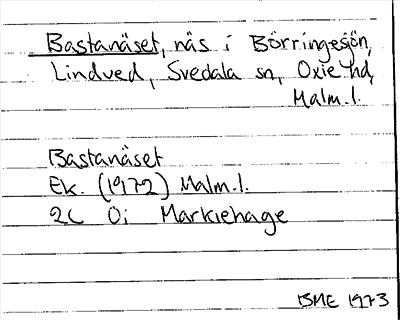 Bastanäset, näs i Börringesjön,
Lindved, Svedala sn, Oxie hd,
Malm.l.
Bastanäset
Ek. (1972) Malm.l.
2C 0i Markiehage
BME 1973